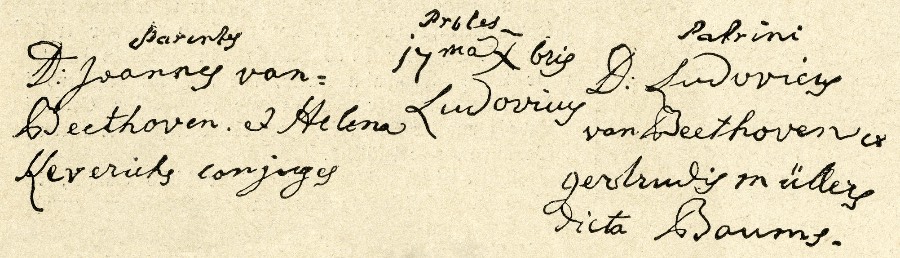 Parentes
D: Joannes van=
Beethoven. et Helena
Keverichs conjuges
Proles
17ma Xbris
Ludovicus
Patrini
D: Ludovicus
van Beethoven et
gertrudis müllers
dicta Baums.